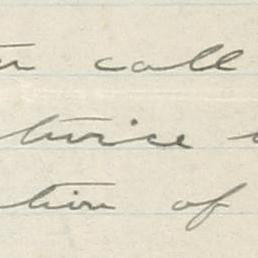 call
twice
tion of